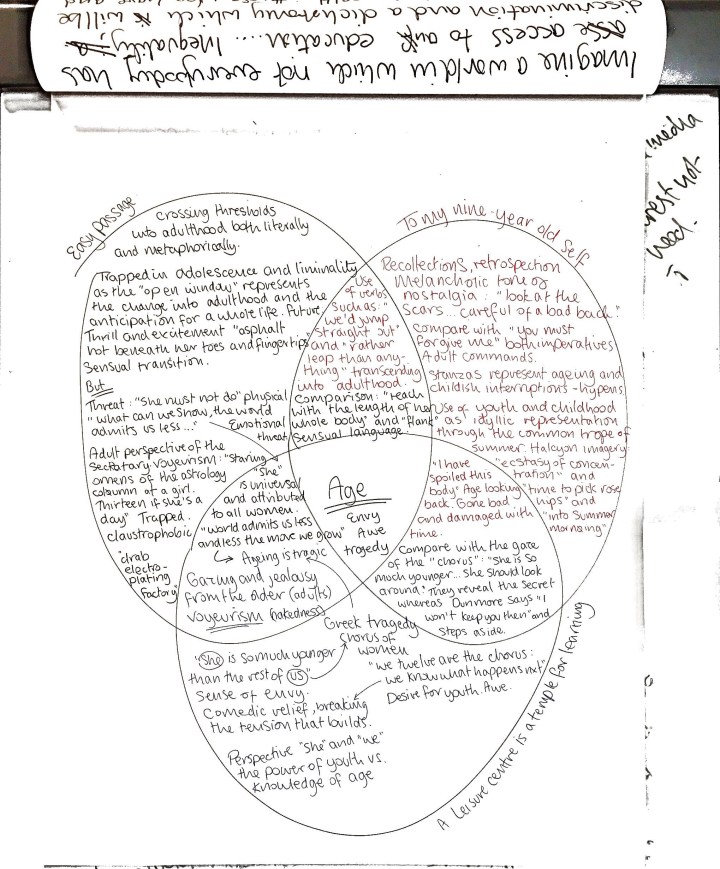 Imagine a world in which not everybody has
access to education..... Inequality,
discrimination and a dichotomy which will be
media
rest not
need.
Easy passage
crossing thresholds
into adulthood both literally
and metaphorically.
Trapped in adolescence and liminality
as the "open window" represents
the change into adulthood and the
anticipation for a whole life. Future
Thrill and excitement "asphalt
hot beneath her toes and fingertips"
Sensual transition.
But
Threat: "She must not do" physical
"What can we know, the world
admits us less..."
Emotional
threat
Adult perspective of the
secretary voyeurism: "Staring
omens of the astrology
column at a girl.
Thirteen if she's a
day" Trapped.
claustrophobic
"drab
electro-
plating
factory"
To my nine-year old self
Recollections, retrospection
Melancholic tone of
nostalgia: "look at the
scars... careful of a bad back."
Compare with "you must
forgive me" both imperatives
Adult commands.
Stanzas represent ageing and
childish interruptions - hypens
Use of youth and childhood
as idyllic representation
through the common trope of
summer. Halcyon imagery:
"ecstasy of concen-
tration" and
"time to pick rose
hips" and
"into Summer
morning"
"I have
spoiled this
body" Age looking
back. Gone bad
and damaged with
time.
Use
of verbs
such as: "
we'd jump
straight out"
and "rather
leap than any-
thing" transcending
into adulthood.
Comparison: "reach
with the length of her
whole body" and "flank"
Sensual language.
Age
Envy
Awe
tragedy
"She"
is universal
and attributed
to all women.
"world admits us less
and less the more we grow"
↳ Ageing is tragic
Gazing and jealousy
from the older (adults)
voyeurism (nakedness)
Compare with the gaze
of the "chorus": "She is so
much younger... she should look
around." They reveal the secret
whereas Dunmore says "I
won't keep you then" and
steps aside.
Greek tragedy
chorus of
women
"She is so much younger
than the rest of us"
sense of envy.
Comedic relief, breaking
the tension that builds.
"we twelve are the chorus:
we know what happens next"
Desire for youth. Awe.
Perspective "she" and "we"
the power of youth vs.
knowledge of age
A Leisure centre is a temple for learning